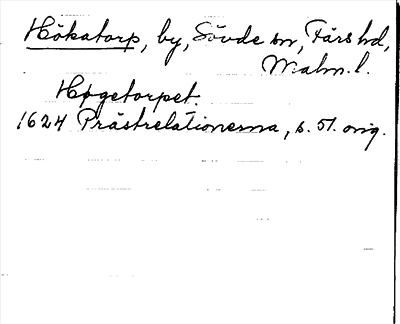 Hökatorp, by, Sövde sn, Färs hd,
Malm. l.
Høgetorpet.
1624 Prästrelationerna, s. 51. orig.